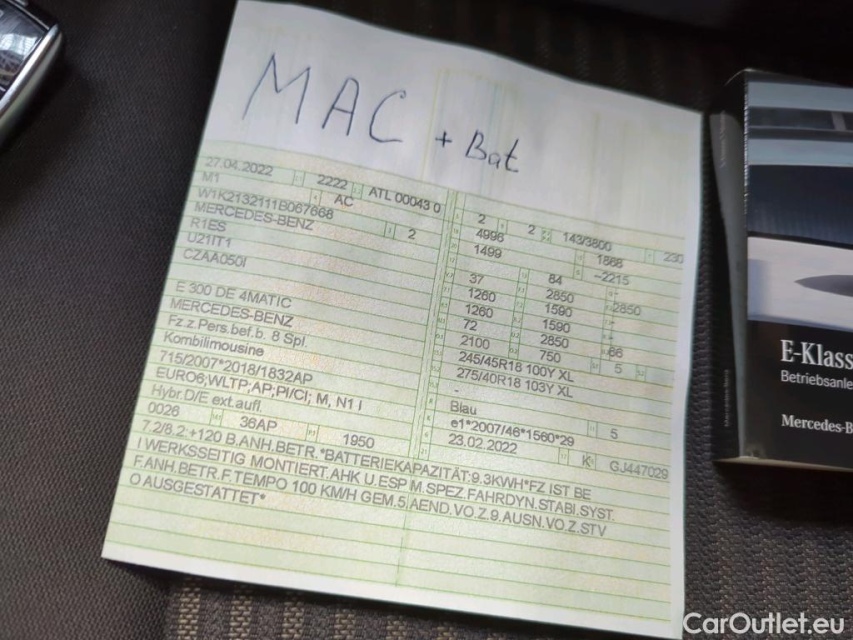 MAC + Bat
27.04.2022 2222 ATL 00043 0 2 2 143/3800 230
M1 AC 4996 1868
W1K2132111B067668 1499 ~2215
MERCEDES-BENZ 2
R1ES 37 84
U21IT1 1260 2850 2850
CZAA050I 1260 1590
72 1590
E 300 DE 4MATIC 2100 2850 66
MERCEDES-BENZ 750 5
Fz.z.Pers.bef.b. 8 Spl. 245/45R18 100Y XL
Kombilimousine 275/40R18 103Y XL
715/2007*2018/1832AP -
EURO6;WLTP;AP;PI/CI; M, N1 I Blau
Hybr.D/E ext.aufl. e1*2007/46*1560*29 5
0026 36AP 1950 23.02.2022 K GJ447029
7.2/8.2:+120 B.ANH.BETR.*BATTERIEKAPAZITÄT:9.3KWH*FZ IST BE
I WERKSSEITIG MONTIERT.AHK U.ESP M.SPEZ.FAHRDYN.STABI.SYST.
F.ANH.BETR.F.TEMPO 100 KM/H GEM.5.AEND.VO.Z.9.AUSN.VO.Z.STV
O AUSGESTATTET*
E-Klass
Betriebsanle
Mercedes-B
CarOutlet.eu